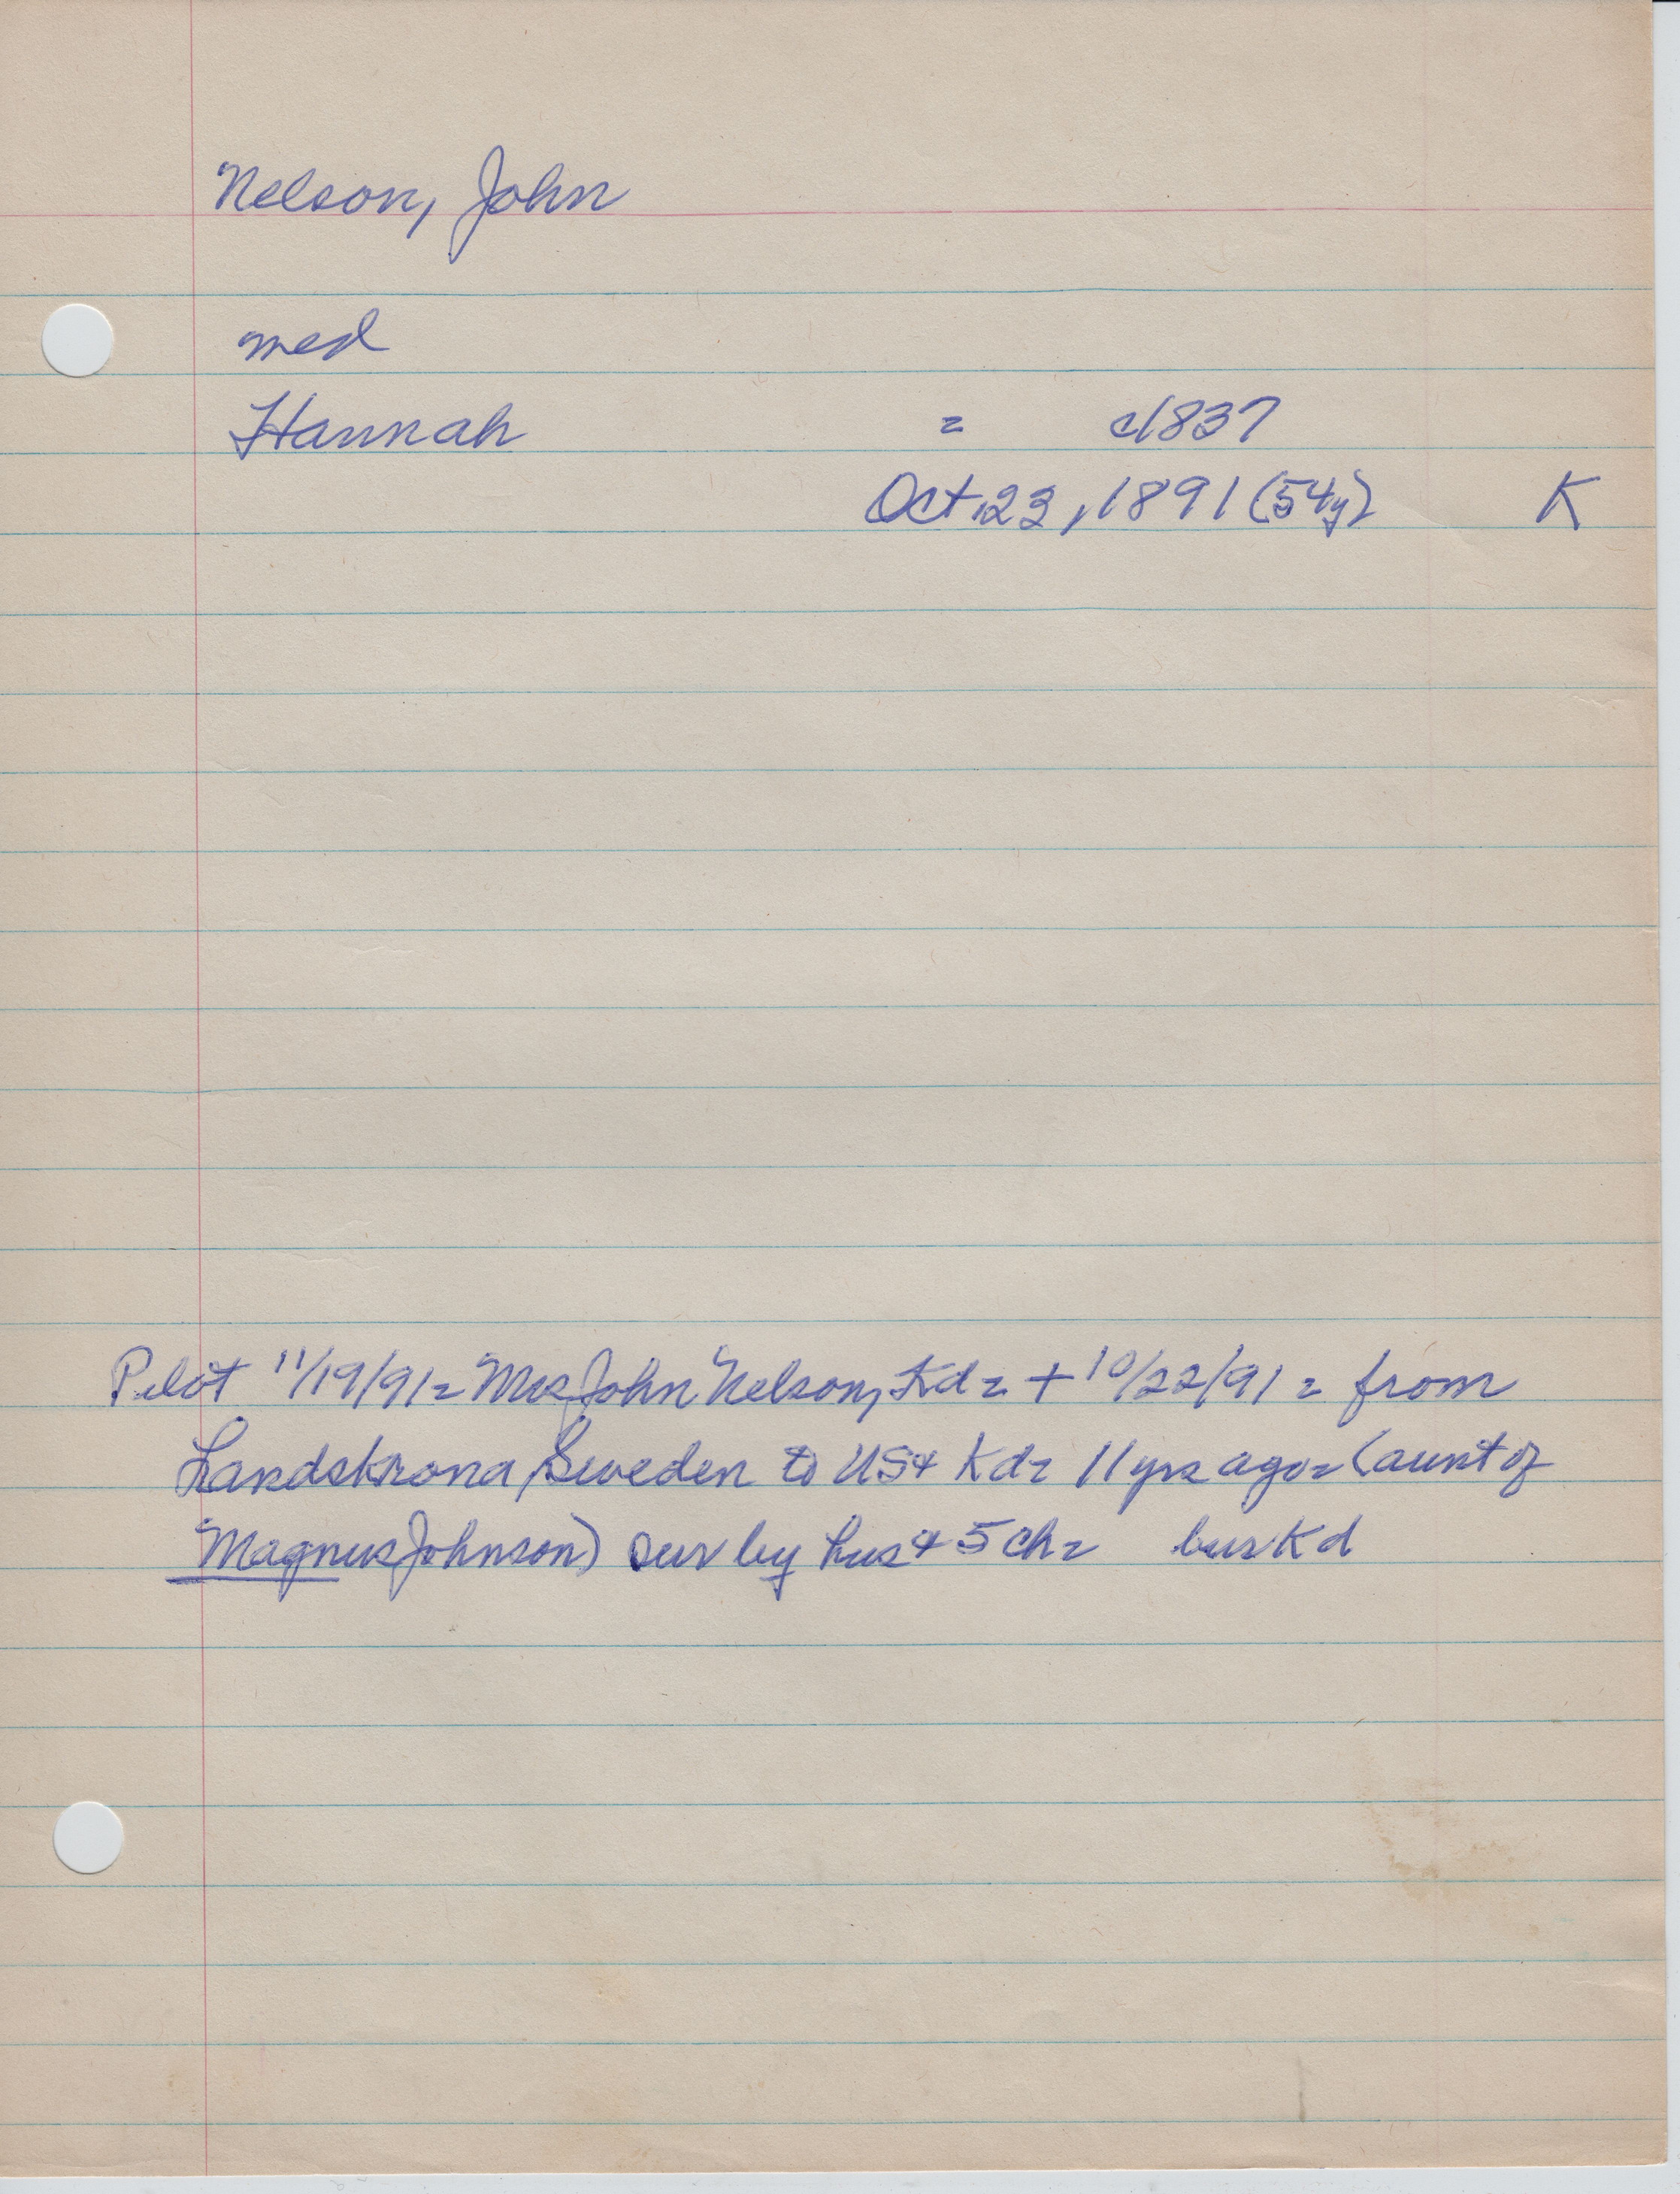 Nelson, John
med
Hannah = c1837
Oct 23, 1891 (54y) K
Pilot 11/19/91 = Mrs John Nelson, Kd = + 10/22/91 = from
Landskrona, Sweden to US + Kd = 11 yrs ago = (aunt of
Magnus Johnson) sur by hus + 5 ch = bur Kd